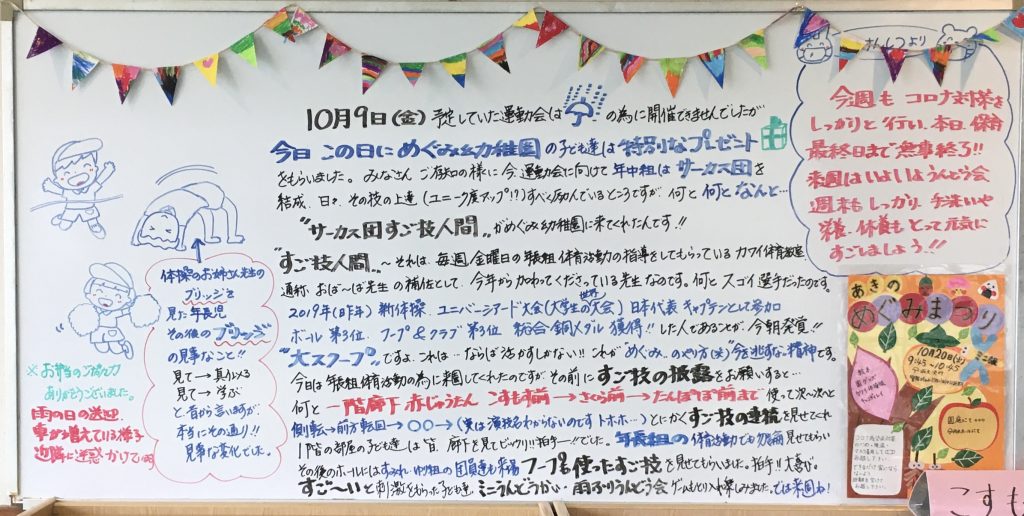 10月9日(金) 予定していた運動会は の為に開催できませんでしたが
今日 この日に めぐみ幼稚園 の子ども達は 特別なプレゼント
をもらいました。みなさん ご存知の様に 今、運動会に向けて 年中組は サーカス団を
結成、日々、その技の上達(ユニーク度アップ!?)すべく励んでいるところですが、何と 何と なんと…
"サーカス団すご技人間" がめぐみ幼稚園に来てくれたんです!!
"すご技人間"〜 それは、毎週金曜日の 年長組 体育活動の指導をしてもらっている カワイ体育教室
通称、おば〜ば先生 の補佐として、今年から加わってくださっている先生なのです。何と スゴイ選手だったのです。
2019年 新体操、ユニバーシアード大会(大学生の世界大会) 日本代表 キャプテンとして参加
ボール 第3位、フープ&クラブ 第3位、総合 銅メダル 獲得!! した人であることが、今朝発覚!!
"大スクープ" ですよ、これは… ならば活かすしかない!! これが めぐみ のやり方(笑) 今を逃すな精神です。
今日は 年長組 体育活動の為に来園してくれたのですが、その前に すご技の披露をお願いすると…
何と 一階廊下 赤じゅうたん こすもす前→さくら前→たんぽぽ前まで 使って 次へ次へと
側転→前方転回→○○→(実は演技名わからないのです トホホ…) とにかく すご技の連続 を見せてくれ
1階の部屋の子ども達は 皆、廊下を見てビックリ!! 拍手…でした。年長組の 体育活動でも 見せてもらい
その後のホールには すみれ の団員達も来場 フープも使ったすご技 を見せてもらいました。拍手!! 大喜び。
すご〜いと 刺激をもらった子ども達、ミニうんどうかい・雨ふりうんどう会 ゲームもとり入れ楽しみました。では来週ね!
体操のお姉さん先生の
ブリッジを
見た年長児
その後の ブリッジ
の見事なこと!!
見て→真似る
見て→学ぶ
と昔から言いますが、
本当にその通り!!
見事な変化でした。
※お弁当のご協力
ありがとうございました。
雨の日の送迎、
車が増えている様子
近隣に迷惑かけないで
えんしつより
今週も コロナ対策を
しっかりと行い、本日、保育
最終日まで無事終了!!
来週はいよいようんどう会
週末も しっかり、手洗いや
栄養、休養もとって元気に
すごしましょう!!
あきの
めぐみまつり
10月20日(火)
9:45〜10:45
ミニ版
こすも